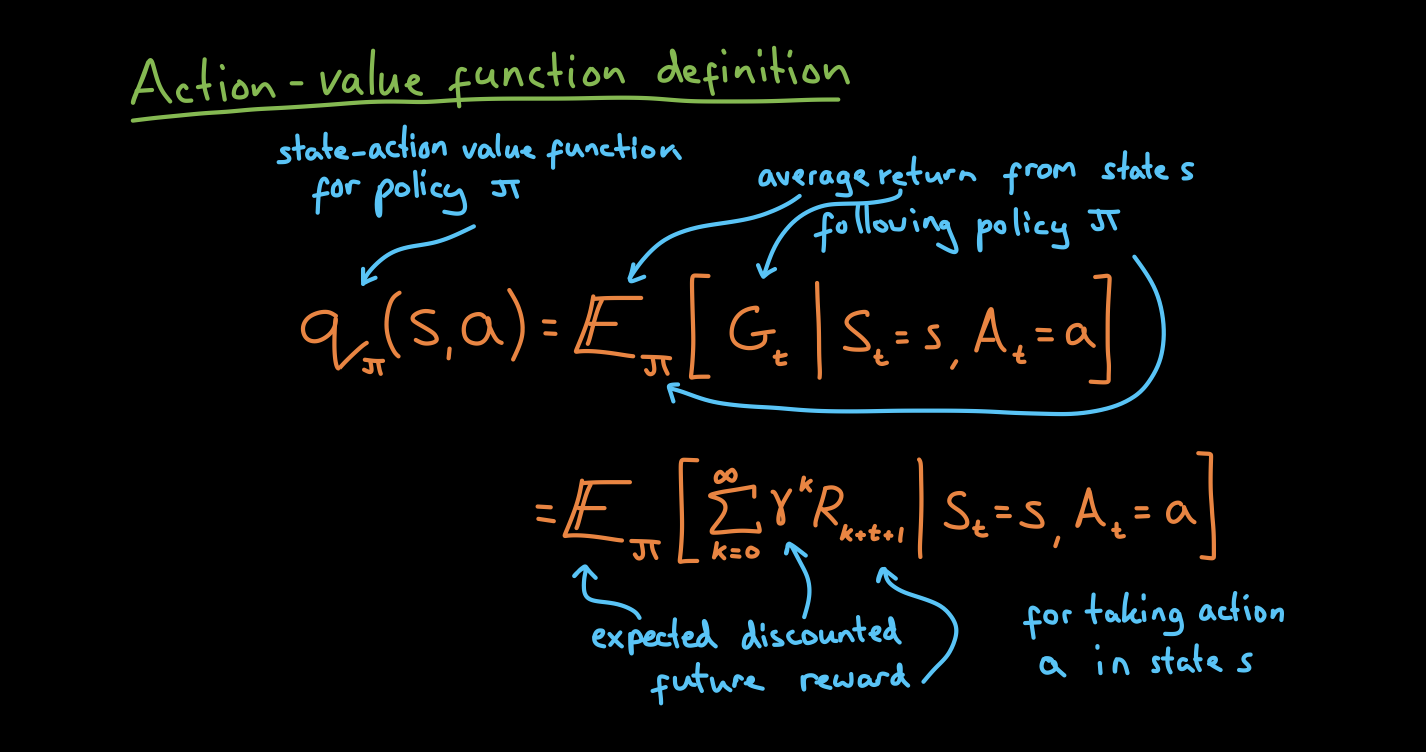 Action-value function definition
state-action value function
for policy π
average return from state s
following policy π
q_π(s,a) = 𝔼_π[G_t | S_t = s, A_t = a]
= 𝔼_π[∑_{k=0}^{∞} γ^k R_{k+t+1} | S_t = s, A_t = a]
expected discounted
future reward
for taking action
a in state s